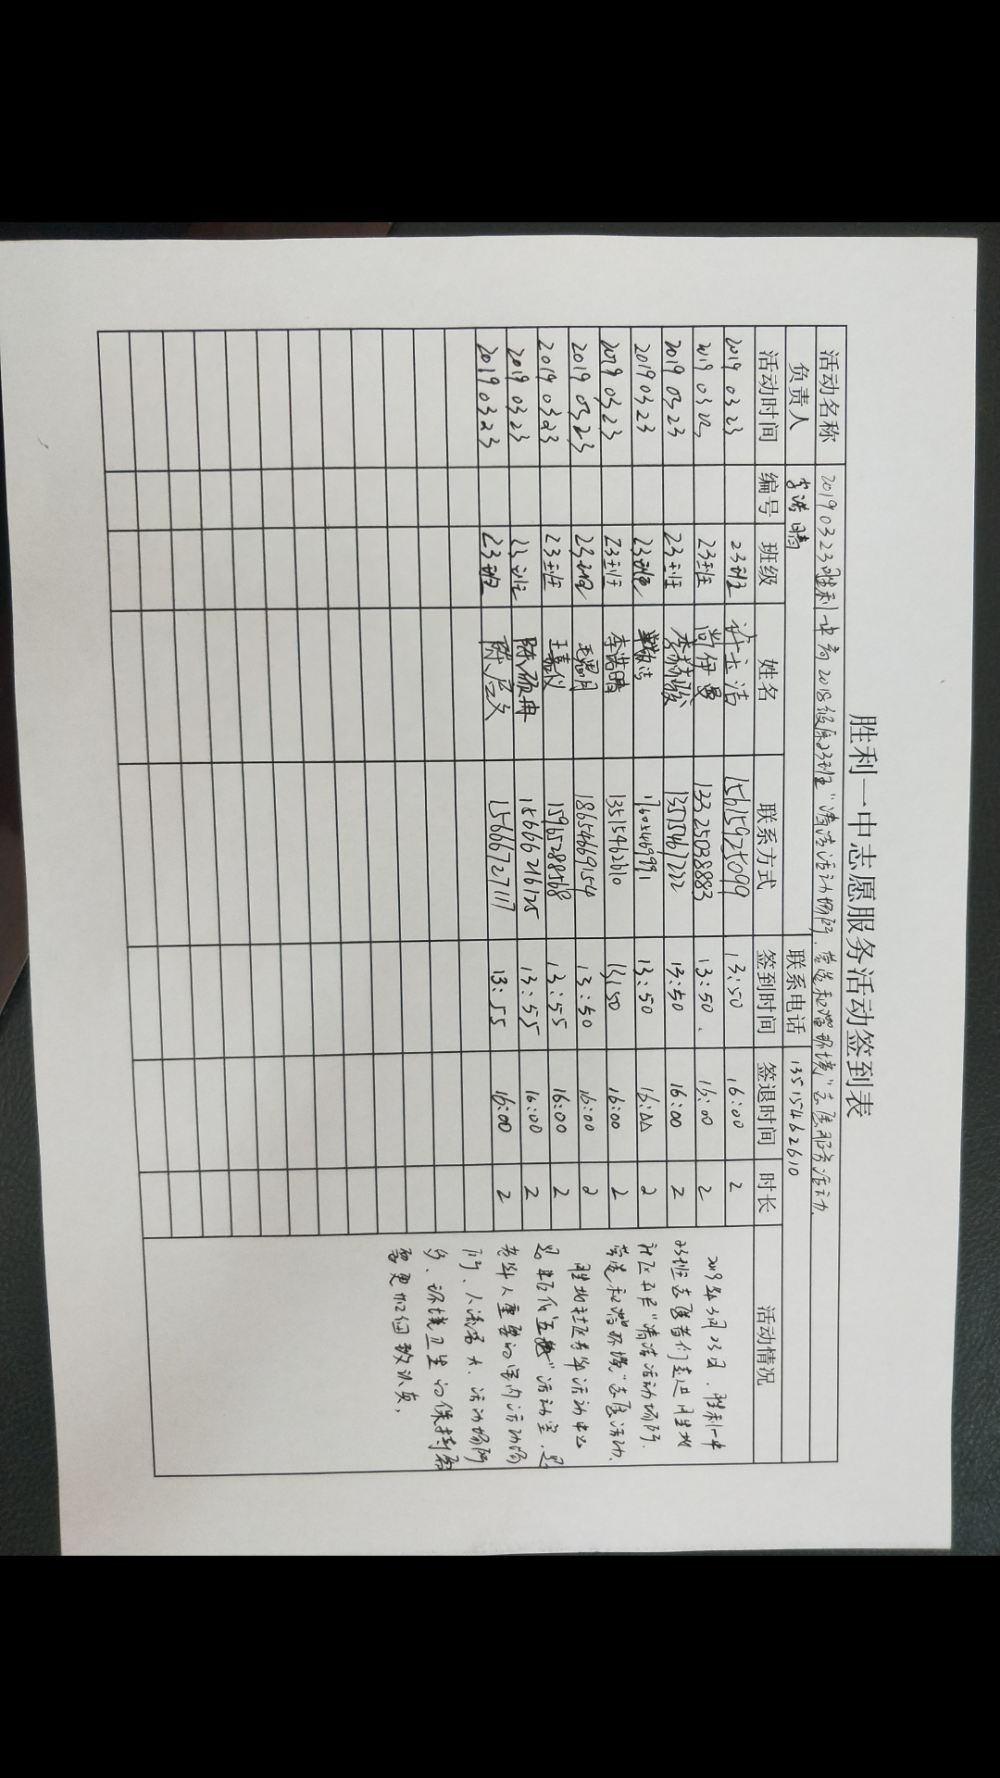 胜利一中志愿服务活动签到表
活动名称 20190323胜利一中高2018级原23班"清洁活动场所,营造和谐环境"志愿服务活动
负责人 李浩晴 联系电话 13515462610
活动时间 编号 班级 姓名 联系方式 签到时间 签退时间 时长 活动情况
2019 03.23 23班 许志洁 15615925099 13:50 16:00 2
2019 03 23班 尚伊曼 13325038883 13:50. 16:00 2
2019 03.23 23班 李 13515467222 13:50 16:00 2
2019 03.23 23班 17605469991 13:50 16:00 2
2019 03.23 23班 李浩晴 13515462610 13:50 16:00 2
2019 03.23 23班 毛思月 18654669154 13:50 16:00 2
2019 03.23 23班 王嘉仪 15965288568 13:55 16:00 2
2019 03.23 23班 陈 18666216125 13:55 16:00 2
2019 03.23 23班 陈 15666727117 13:55 16:00 2
2019年3月23日,胜利一中
23班志愿者们走进胜北
社区开展"清洁活动场所,
营造和谐环境"志愿活动.
胜北社区老年活动中心
是 活动室,是
老年人重要的室内活动场
所,人流量大,活动场所
多,环境卫生的保持需
要更加细致认真,